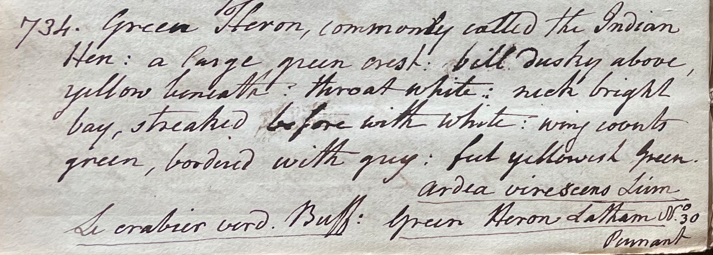 734. Green Heron, commonly called the Indian
Hen: a large green crest: bill dusky above,
yellow beneath: throat white: neck bright
bay, streaked before with white: wing coverts
green, bordered with grey: feet yellowish green.
Ardea virescens Linn
Le crabier verd. Buff: Green Heron Latham No. 30
Pennant